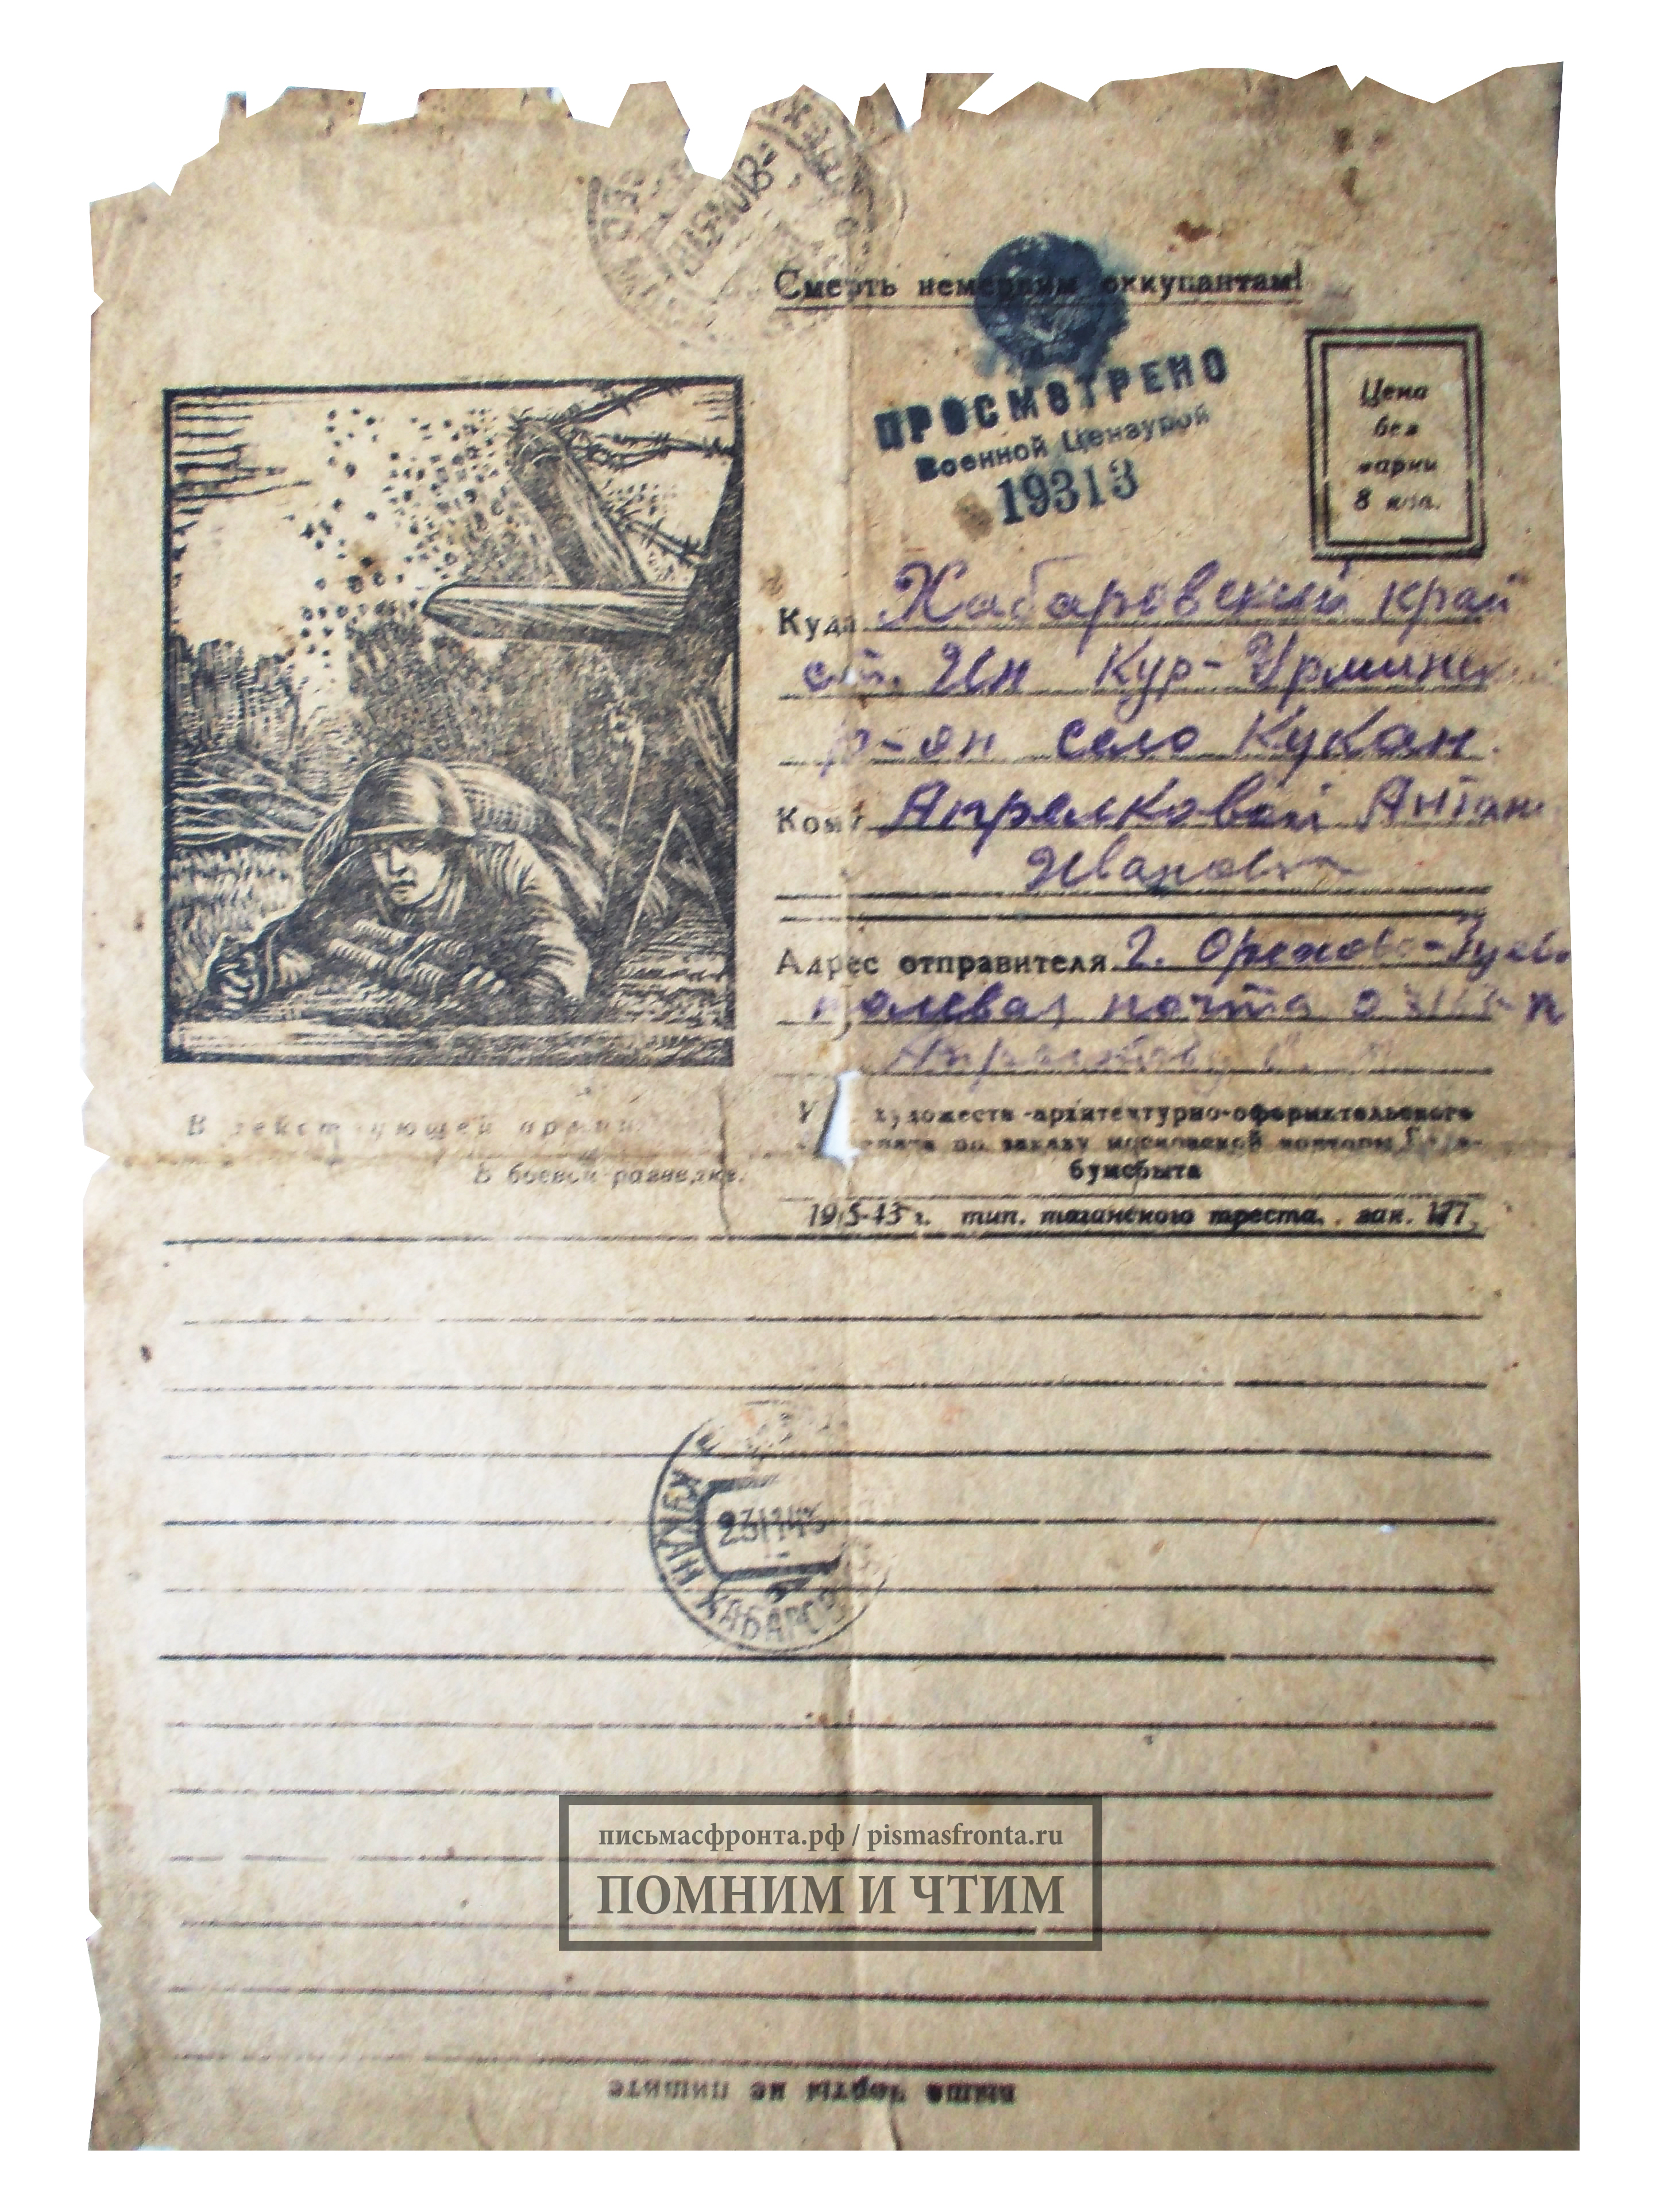 Смерть немецким оккупантам!
ПРОСМОТРЕНО
Военной Цензурой
19313
Цена
без
марки
8 коп.
Куда Хабаровский край
ст. Ин Кур-Урминск
р-он село Кукан.
Кому Апрелковой Антон
Ивановн
Адрес отправителя г. Орехово-Зуево
полевая почта
В действующей армии
В боевой разведке.
художеств-архитектурно-оформительского
по заказу московской конторы
бумсбыта
тип. таганского треста. зак. 177.
КУКАН ХАБАРОВ
23 11 43
письмасфронта.рф / pismasfronta.ru
ПОМНИМ И ЧТИМ
выше черты не пишите